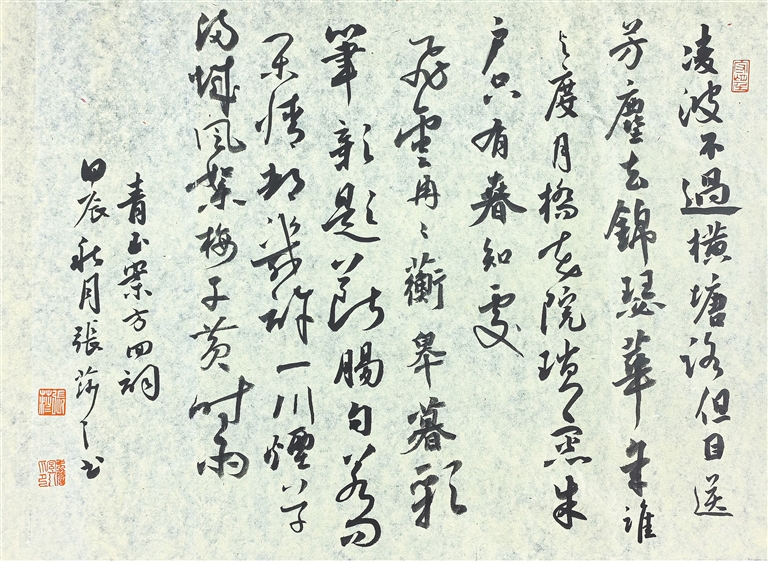 凌波不過橫塘路但目送
芳塵去錦瑟華年誰
与度月橋花院瑣窗朱
戶只有春知處
飛雲冉〻蘅皋暮彩
筆新題斷腸句若問
閑情都幾許一川煙草
滿城風絮梅子黃時雨
青玉案方回詞
甲辰秋月張